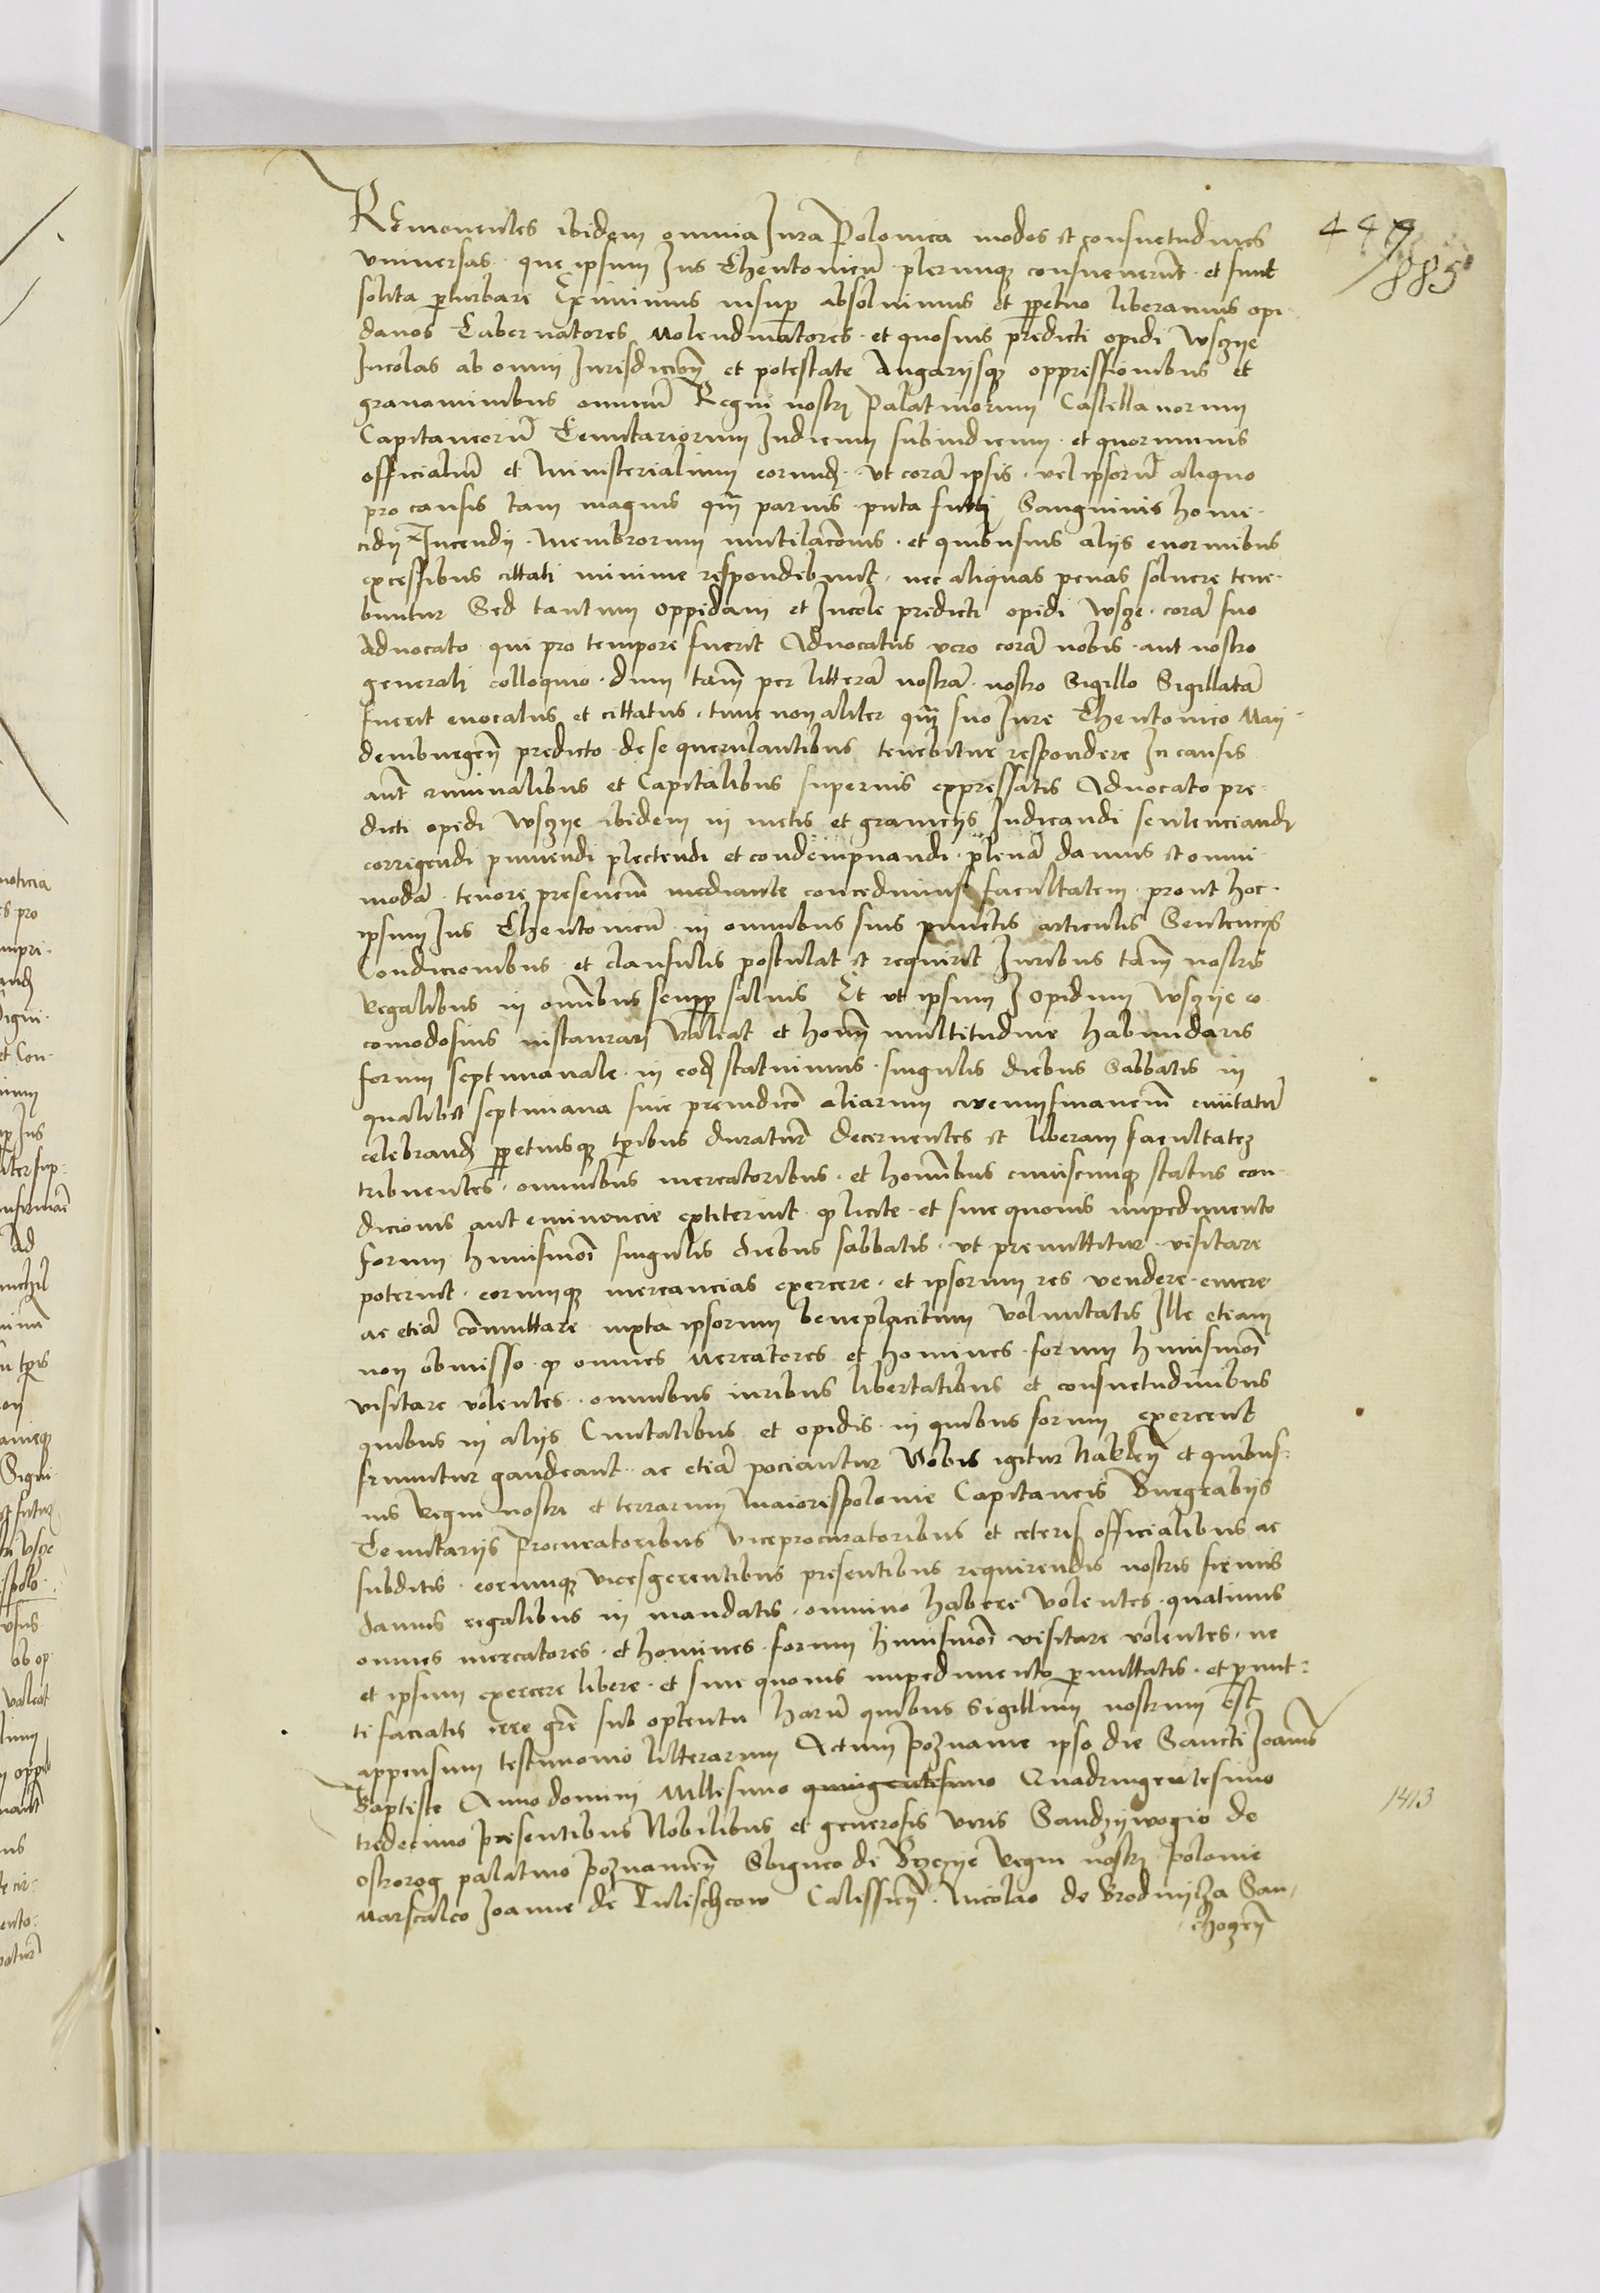 REmouentes ibidem omnia Jura Polonica modos et consuetudines
vniuersas que ipsum Jus Theutonicũ plerumq₃ consueuerũt et sunt
solita p̱turbare Eximimus insup̱ absoluimus et pp̱etuo liberamus opi-
danos Tabernatores Molendinatores et quosuis predicti opidi Wsczye
Incolas ab omni Jurisdicciõe et potestate Angarijsq₃ oppressionibus et
grauaminibus omniũ Regni nostri Palatinorum Castellanorum
Capitaneorũ Tenutariorum Judicum subiudicum et quorumuis
officialiũ et Ministerialium eorund̃ vt corã ipsis vel ipsorũ aliquo
pro causis tam magnis qm̃ paruis puta furti Sanguinis homi-
cidij Incendij Membrorum mutilacõnis et quibusuis alijs enormibus
excessibus cittati minime respondebunt nec aliquas penas soluere tene-
buntur Sed tantum oppidani et Incole predicti opidi Wsze corã suo
Aduocato qui pro tempore fuerit Aduocatus vero corã nobis aut nostro
generali colloquio dum tam̃ per litterã nostrã nostro Sigillo Sigillatã
fuerit euocatus et cittatus tunc non aliter qm̃ suo Jure Theutonico May-
demburgeñ predicto de se querulantibus tenebitur respondere In causis
aut̃ criminalibus et Capitalibus superius expressatis Aduocato pre-
dicti opidi Wsczye ibidem in metis et granicijs Judicandi sentenciandi
corrigendi puniendi plectendi et condempnandi plenã damus et omni-
modã tenore presenciũ mediante concedimus facultatem prout hoc
ipsum Jus Theutonicũ in omnibus suis punctis articulis Sentencijs
Condicionibus et clausulis postulat et requirit Juribus tam̃ nostris
regalibus in omĩbus semp̱ saluis Et vt ipsum opidum Wsczye eo
comodosius instaurari valeat et homĩ multitudine habundaris
forum septimanale in eod̃ statuimus singulis diebus Sabbatis in
qualibet septimana sine preiudicõ aliarum circumiacenciũ ciuitatũ
celebrand̃ pp̱etuisq₃ tp̱ibus duraturũ decernentes et liberam facultatẽ
tribuentes omnibus mercatoribus et homĩbus cuiuscunq₃ status con-
dicionis aut eminencie extiterint q̱ licite et sine quouis impedimento
forum huiusmõi singulis diebus sabbatis vt premittitur visitare
poterint eorumq₃ mercancias exercere et ipsorum res vendere emere
ac etiã cõmuttare iuxta ipsorum beneplacitum voluntatis Ille etiam
non obmisso q̱ omnes Mercatores et homines forum huiusmõi
visitare volentes omnibus iuribus libertatibus et consuetudinibus
quibus in alijs Ciuitatibus et opidis in quibus forum exercent
fruuntur gaudeant ac etiã pociantur Vobis igitur Nakleñ et quibus-
uis regni nostri et terrarum Maiorispolonie Capitaneis Burgrabijs
Tenutarijs Procuratoribus viceprocuratoribus et ceteris officialibus ac
subditis eorumq₃ vicesgerentibus presentibus requirendis nostris firmis
damus regalibus in mandatis omnino habere volentes quatinus
omnes mercatores et homines forum huiusmõi visitare volentes ne
et ipsum exercere libere et sine quouis impedimento p̱mittatis et p̱mit-
ti faciatis grẽ sub optentu harũ quibus Sigillum nostrum est
appensum testimonio litterarum Actum Poznanie ipso die Sancti Joannis
Baptiste Anno domini Millesimo quingentesimo Quadringentesimo
tredecimo presentibus Nobilibus et generosis viris Sandzywogio de
Ostrorog palatino Poznanieñ Sbigneo de Brzezye regni nostri Polonie
Marscalco Joanne de Tulischcow Calissieñ Nicolao de Brodnytza San-
chogeñ
447
885
1413